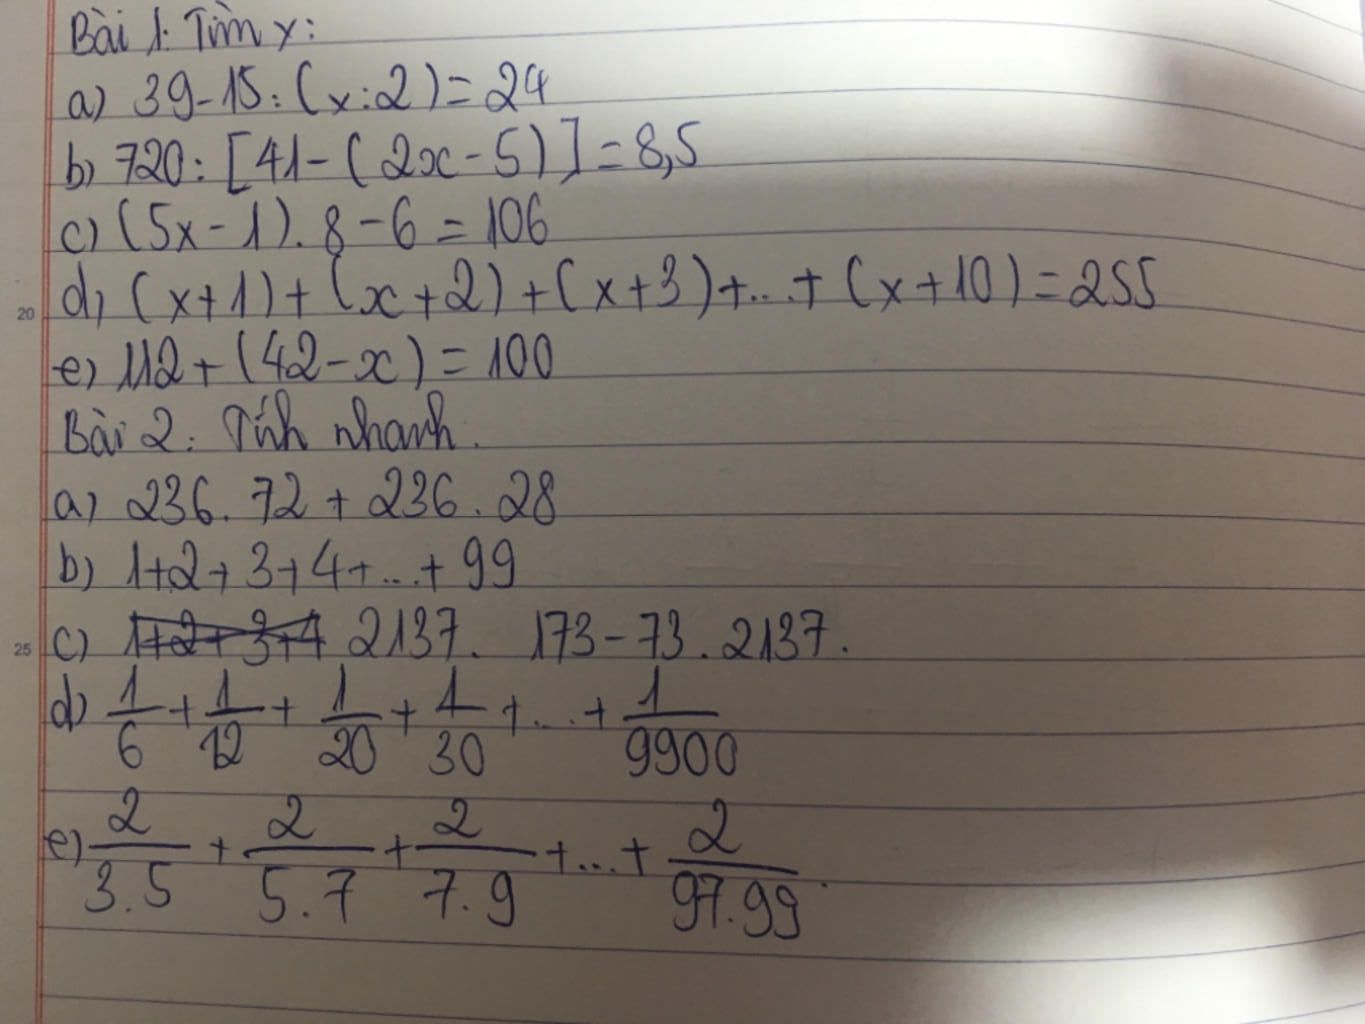 Bài 1: Tìm x:
a) 39-15:(x:2)=24
b) 720:[41-(2x-5)]=8,5
c) (5x-1).8-6=106
d) (x+1)+(x+2)+(x+3)+...+(x+10)=255
20
e) 112+(42-x)=100
Bài 2: Tính nhanh.
a) 236.72+236.28
b) 1+2+3+4+...+99
c) 1+2+3+4 2137. 173-73.2137.
25
d) 1/6+1/12+1/20+1/30+...+1/9900
e) 2/3.5+2/5.7+2/7.9+...+2/97.99.